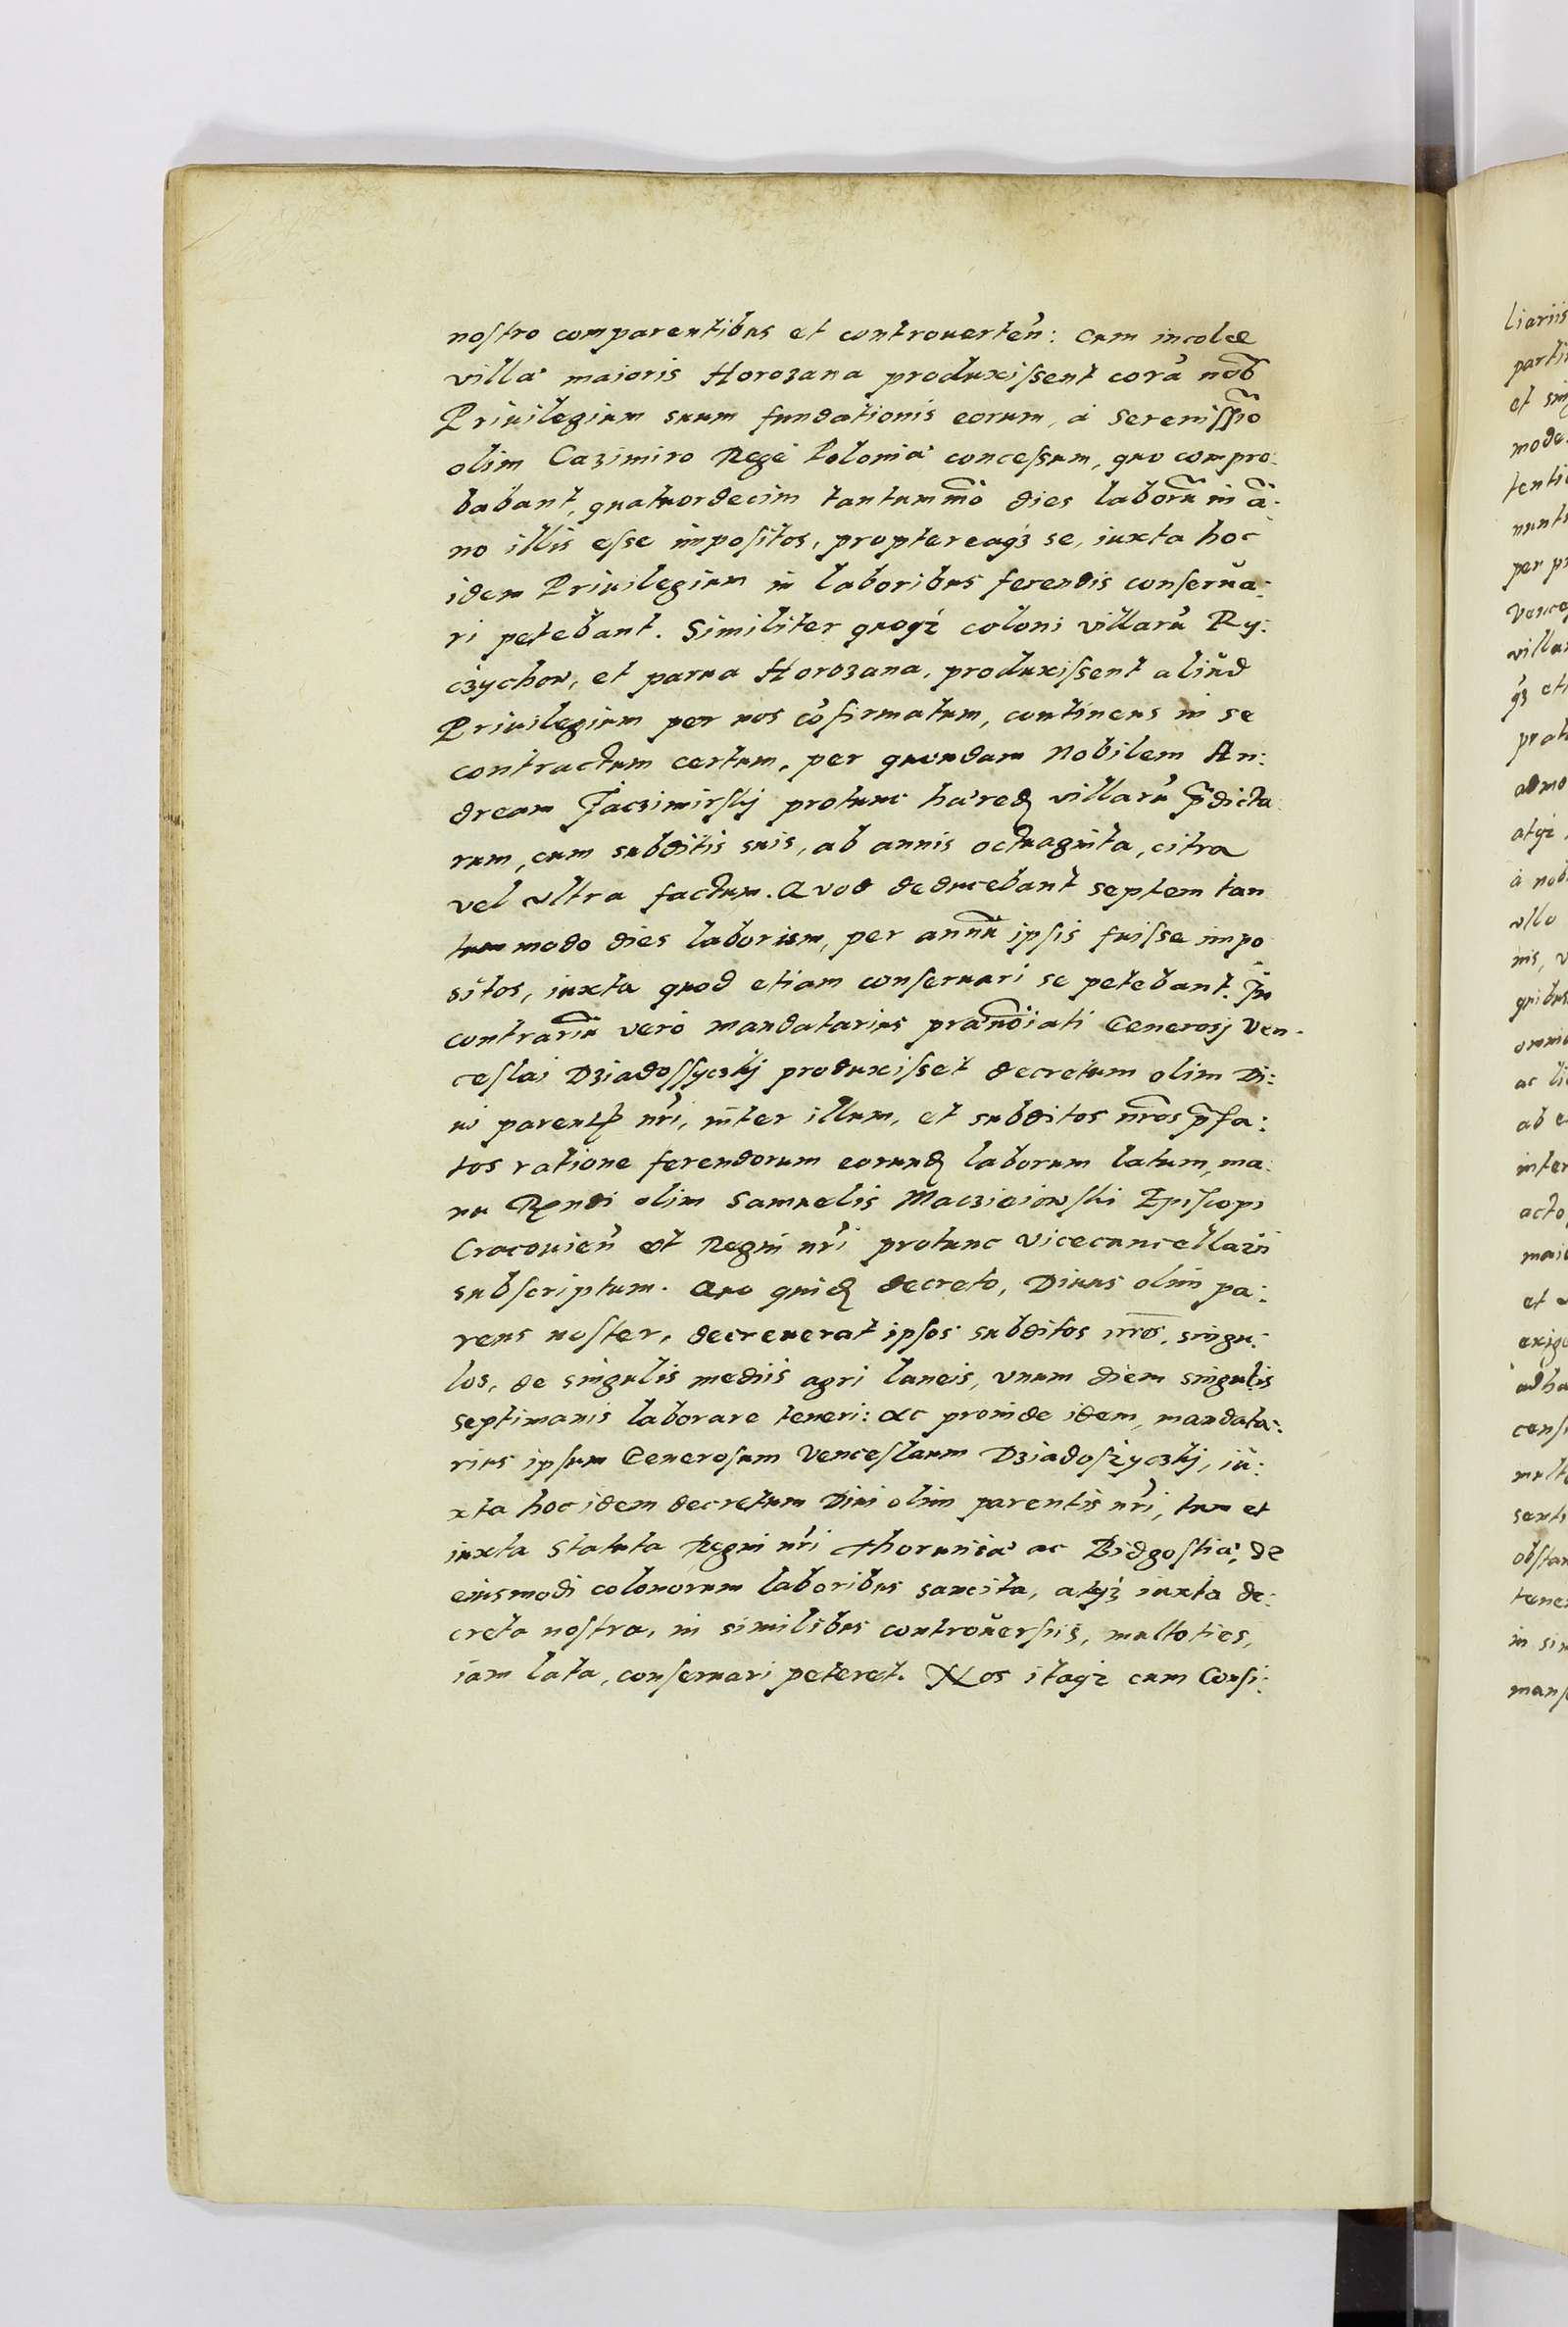 nostro comparentibus et controuerteń: Cum incolæ
villæ maioris Horozana produxissent corã nob̃
Priuilegium suum fundationis eorum, à Serenissĩo
olim Cazimiro Rege Poloniæ concessum, quo compro:
babant, quatuordecim tantummõ dies laborũ in ã:
no illis esse impositos, proptereaq́ꝫ se, iuxta hoc
idem Priuilegium in laboribus ferendis conserua:
ri petebant. Similiter quoqꝫ coloni villarũ Ry:
czychow, et parua Horozana, produxissent aliud
Priuilegium per nos cõfirmatum, continens in se
contractum certum, per quondam Nobilem An:
dream Jaczimirskj protunc hæredꝫ villarũ p̃dicta:
rum, cum subditis suis, ab annis octuaginta, citra
vel vltra factum. Quod deducebant septem tan
tummodo dies laborum, per annũ ipsis fuisse impo
sitos, iuxta quod etiam conseruari se petebant. In
contrariũ verò mandatarius prænõiati Generosj Ven-
ceslai Dziadossyczkj produxisset decretum olim Di:
ui parentꝭ nr̃i, inter illum, et subditos nr̃os p̃fa:
tos ratione ferendorum eorundꝫ laborum latum, ma:
nu Rẽndi olim Samuelis Macziciowski Episcopi
Cracouień et Regni nr̃i protunc Vicecancellarii
subscriptum. Quo quidꝫ decreto, Diuus olim pa:
rens noster, decreuerat ipsos subditos nr̃os, singu:
los, de singulis mediis agri laneis, vnum diem singulis
septimanis laborare teneri: ac proinde idem, mandata:
rius ipsum Generosum Venceslaum Dziadoszyczkj, iu:
xta hoc idem decretum Diui olim parentis nr̃i, tum et
iuxta Statuta Regni nr̃i Thoruniæ ac Bidgostiæ, de
eiusmodi colonorum laboribus sancita, atqꝫ iuxta de:
creta nostra, in similibus controuersiis, multoties,
iam lata, conseruari peteret. Nos itaqꝫ cum Consi: